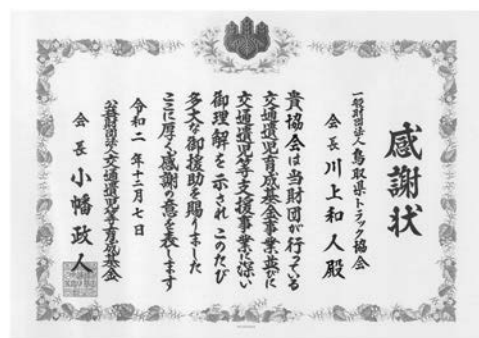 感謝状
一般財団法人鳥取県トラック協会
会長 川上和人殿
貴協会は当財団が行っている
交通遺児育成基金事業並びに
交通遺児等支援事業に深い
御理解を示されこのたび
多大な御援助を賜りました
ここに厚く感謝の意を表します
令和二年十二月七日
公益財団法人交通遺児等育成基金
会長 小幡政人